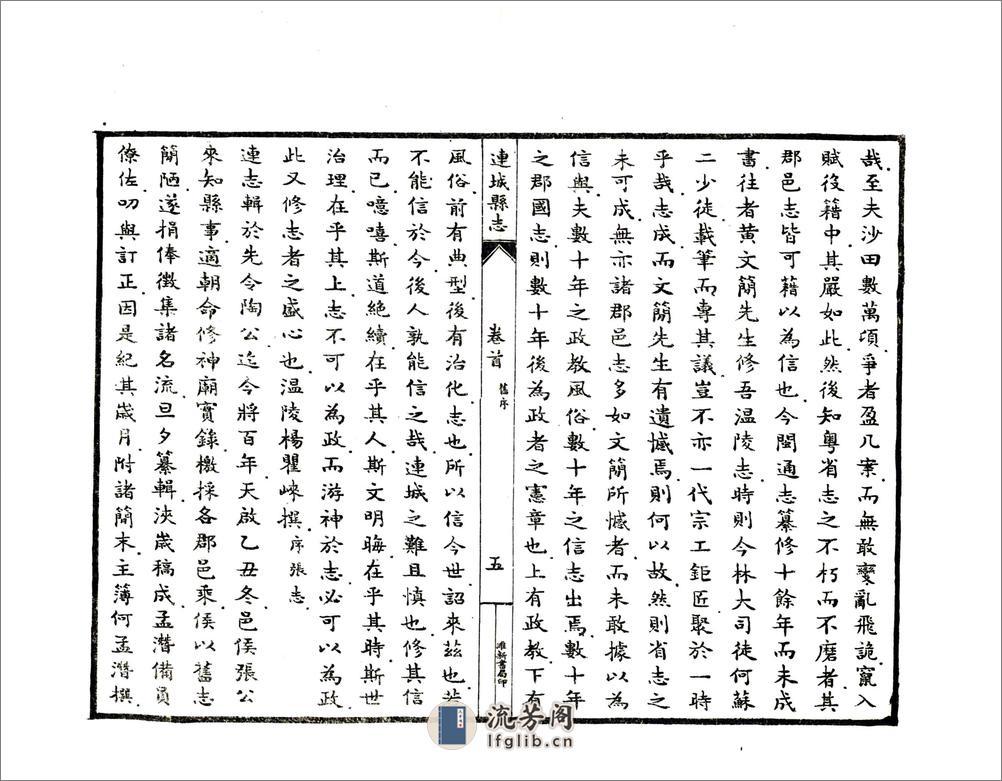 哉至夫沙田數萬項爭者盈几案而無敢變亂飛詭竄入
賦役籍中其嚴如此然後知粵省志之不朽而不磨者其
郡邑志皆可藉以為信也今閩通志纂修十餘年而未成
書往者黃文簡先生修吾溫陵志時則今林大司徒何蘇
二少徒載筆而專其議豈不亦一代宗工鉅匠聚於一時
乎哉志成而文簡先生有遺憾焉則何以故然則省志之
未可成無亦諸郡邑志多如文簡所憾者而未敢據以為
信與夫數十年之政教風俗數十年之信志出焉數十年
之郡國志則數十年後為政者之憲章也上有政教下有
連城縣志
卷首
舊序
五
維新書局印
風俗前有典型後有治化志也所以信今世詔來茲也若
不能信於今後人孰能信之哉連城之難且慎也修其信
而已噫嘻斯道絕續在乎其人斯文明晦在乎其時斯世
治理在乎其上志不可以為政而游神於志必可以為政
此又修志者之盛心也溫陵楊瞿崍撰序張志
連志輯於先令陶公迄今將百年天啟乙丑冬邑侯張公
來知縣事適朝命修神廟實錄檄採各郡邑乘侯以舊志
簡陋遂捐俸徵集諸名流旦夕纂輯浹歲稿成孟潛備員
僚佐叨與訂正因是紀其歲月附諸簡末主簿何孟潛撰
流芳阁
lfglib.cn